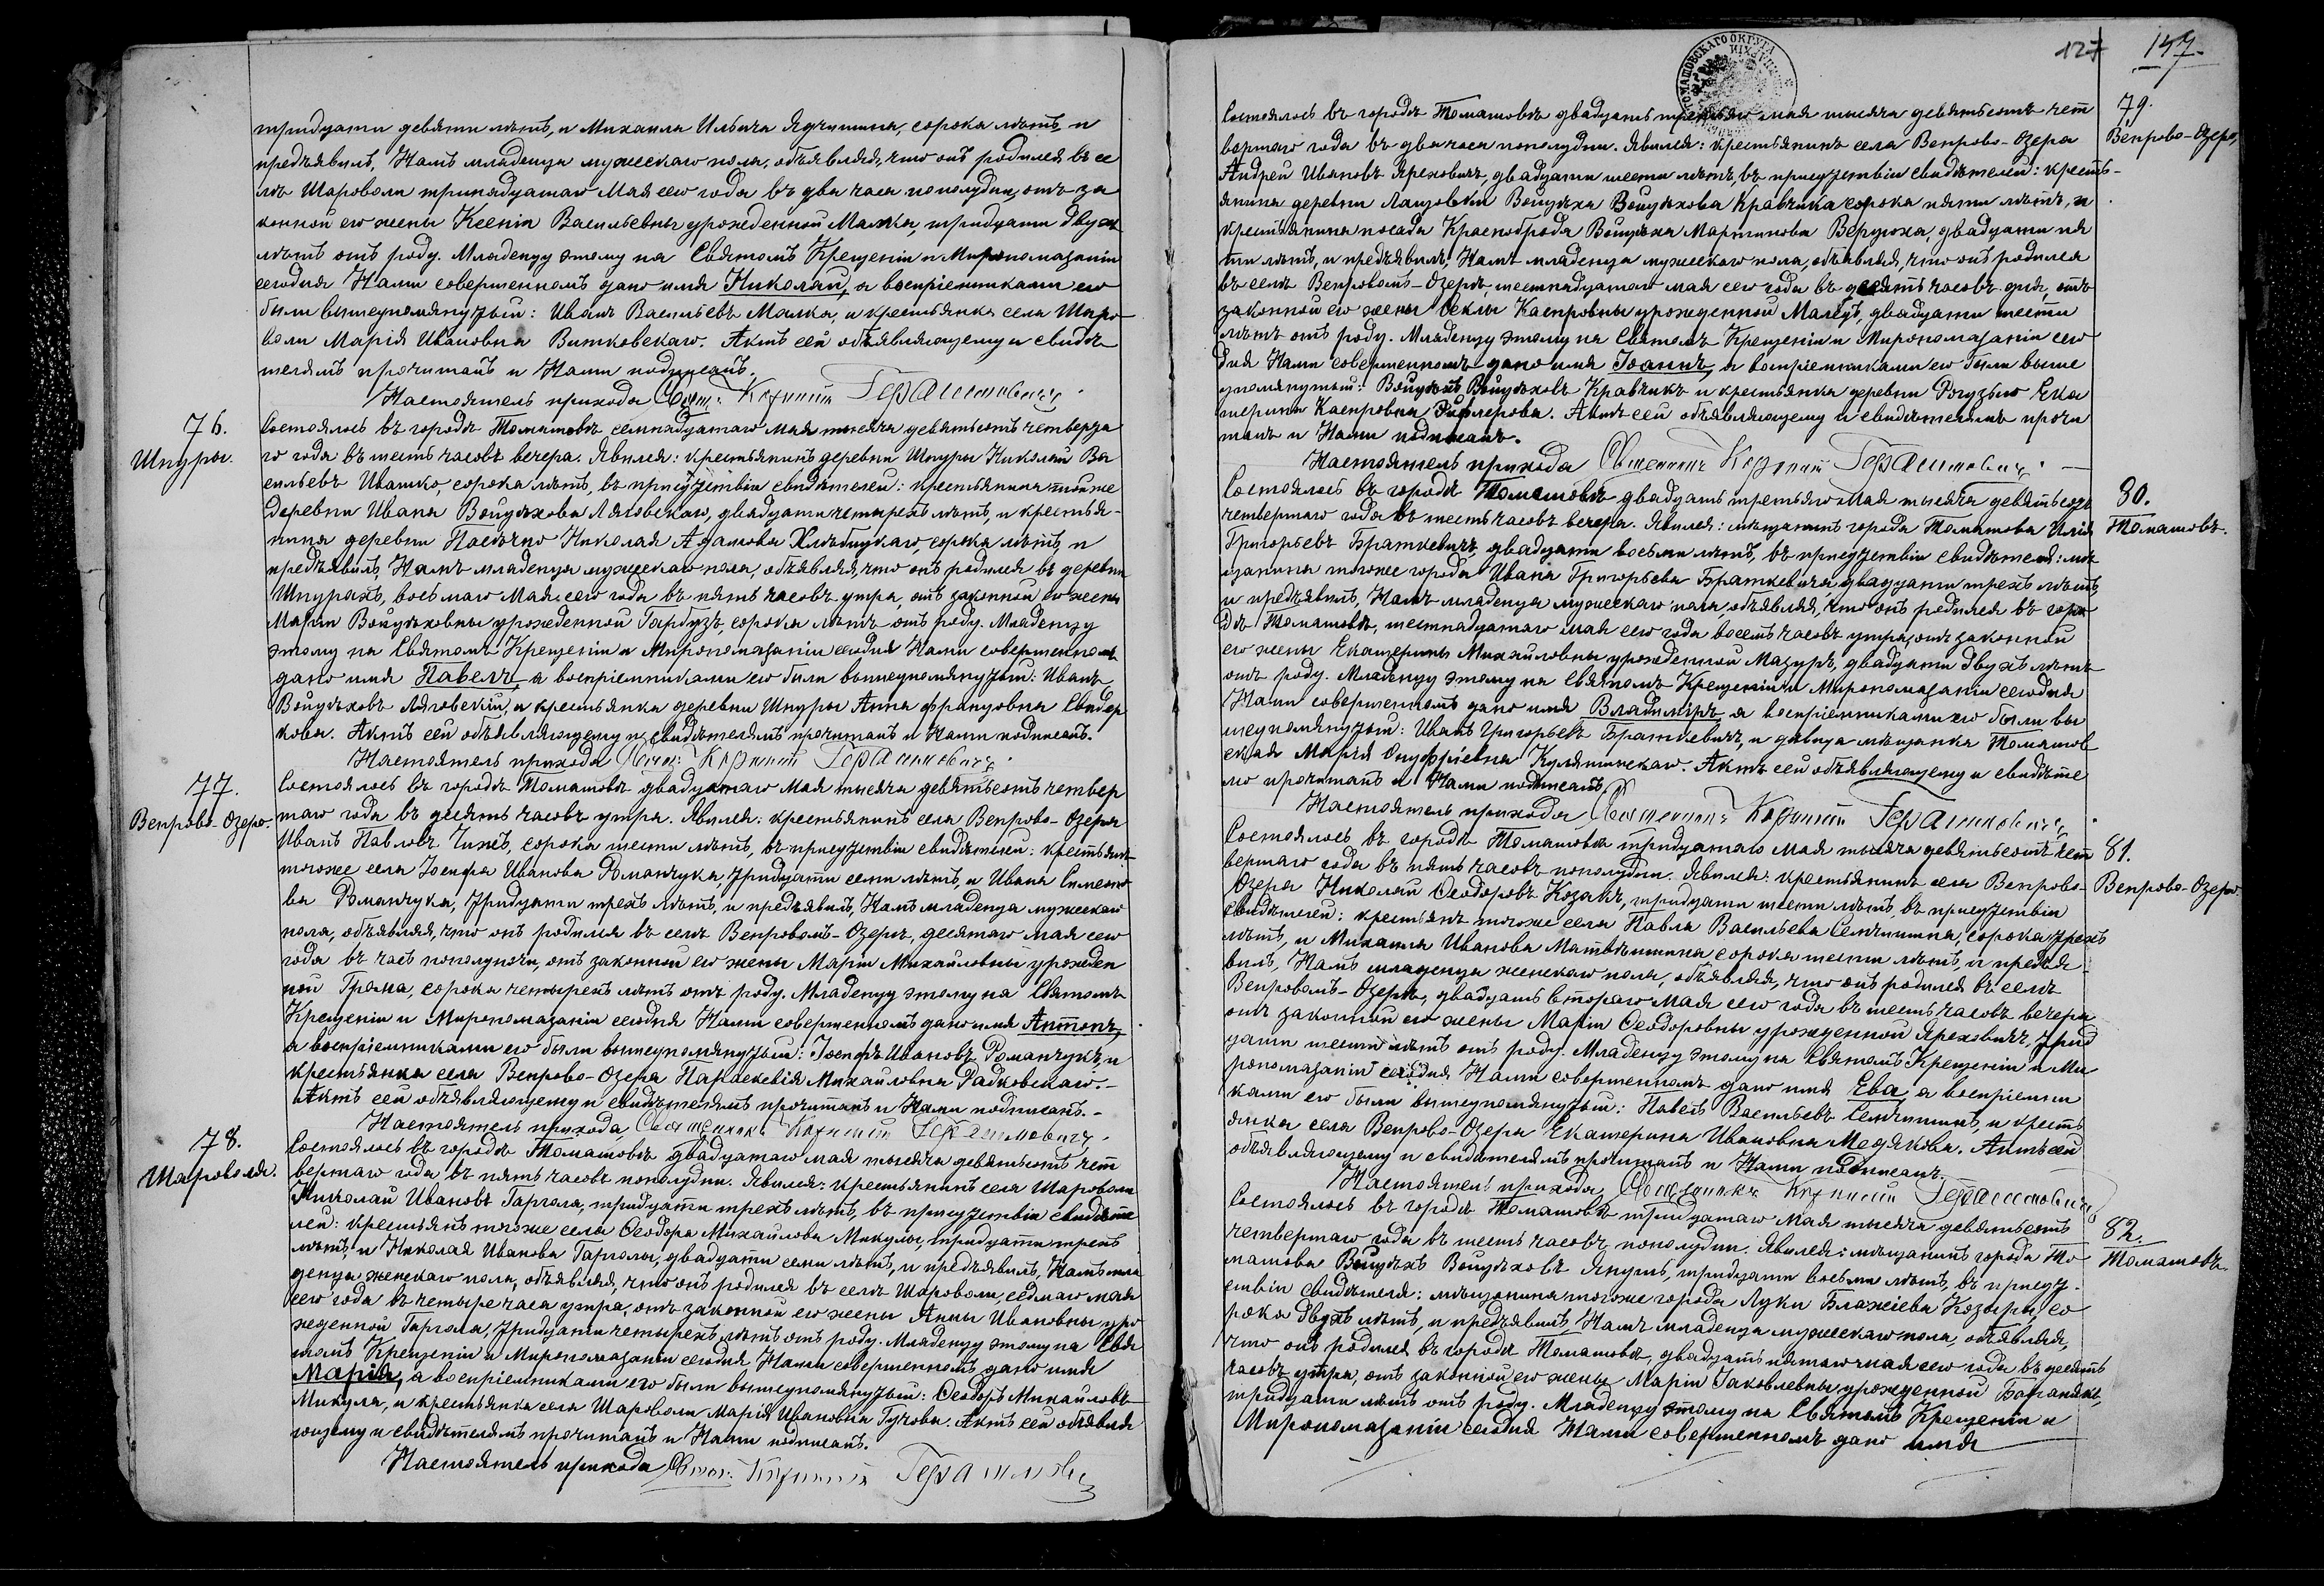 тридцати девяти лѣтъ, и Михаила Ильича Ядчишина, сорока лѣтъ, и
предъявилъ, Намъ младенца мужескаго пола, объявляя, что онъ родился въ се
лѣ Шароволи тринадцатаго Мая сего года въ два часа пополудни, отъ за
конной его жены Ксеніи Васильевны урожденной Малка, тридцати двухъ
лѣтъ отъ роду. Младенцу этому на Святомъ Крещеніи и Миропомазаніи
сегодня Нами совершенномъ дано имя Николай, а воспріемниками его
были вышеупомянутый: Иванъ Васильевъ Малка, и крестьянка села Шаро-
воли Марія Ивановна Витковскаго. Актъ сей объявляющему и свидѣ
телямъ прочитанъ и Нами подписанъ.
Настоятель прихода Свящ: Корнилій Герасимовичъ
76.
Шпуры.
Состоялось въ городѣ Томашовѣ семнадцатаго мая тысяча девятьсотъ четверта
го года въ шесть часовъ вечера. Явился: крестьянинъ деревни Шпуры Николай Ва
сильевъ Ивашко, сорока лѣтъ, въ присутствіи свидѣтелей: крестьянина той же
деревни Ивана Войцѣхова Ляховскаго, двадцати четырехъ лѣтъ, и крестья-
нина деревни Посѣчно Николая Адамова Хлѣбицкаго, сорока лѣтъ, и
предъявилъ, Намъ младенца мужескаго пола, объявляя, что онъ родился въ деревнѣ
Шпурахъ, восьмаго Мая сего года въ пять часовъ утра, отъ законной его жены
Маріи Войцѣховны урожденной Гарбузъ, сорока лѣтъ отъ роду. Младенцу
этому на Святомъ Крещеніи и Миропомазаніи сегодня Нами совершенномъ
дано имя Павелъ, а воспріемниками его были вышеупомянутый: Иванъ
Войцѣховъ Ляховскій, и крестьянка деревни Шпуры Анна Францовна Свидер
кова. Актъ сей объявляющему и свидѣтелямъ прочитанъ и Нами подписанъ.
Настоятель прихода Свящ: Корнилій Герасимовичъ
77.
Вепрово-Озеро.
Состоялось въ городѣ Томашовѣ двадцатаго Мая тысяча девятьсотъ четвер
таго года въ десять часовъ утра. Явился: крестьянинъ села Вепрово-Озера
Иванъ Павловъ Чихъ, сорока шести лѣтъ, въ присутствіи свидѣтелей: крестьянъ
тогоже села Іосифа Иванова Романчука, тридцати семи лѣтъ, и Ивана Симеоно
ва Романчука, тридцати трехъ лѣтъ, и предъявилъ, Намъ младенца мужескаго
пола, объявляя, что онъ родился въ селѣ Вепровомъ-Озерѣ, десятаго мая сего
года въ часъ пополуночи, отъ законной его жены Маріи Михайловны урожден
ной Грома, сорока четырехъ лѣтъ отъ роду. Младенцу этому на Святомъ
Крещеніи и Миропомазаніи сегодня Нами совершенномъ дано имя Антонъ,
а воспріемниками его были вышеупомянутый: Іосифъ Ивановъ Романчукъ, и
крестьянка села Вепрово-Озера Параскевія Михайловна Радковскаго.-
Актъ сей объявляющему и свидѣтелямъ прочитанъ и Нами подписанъ.-
Настоятель прихода, Священникъ Корнилій Герасимовичъ
78.
Шароволя.
Состоялось въ городѣ Томашовѣ двадцатаго мая тысяча девятьсотъ чет
вертаго года въ пять часовъ пополудни. Явился: крестьянинъ села Шароволи
Николай Ивановъ Гаргола, тридцати трехъ лѣтъ, въ присутствіи свидѣте
лей: крестьянъ тогоже села Ѳеодора Михайлова Микулы, тридцати трехъ
лѣтъ, и Николая Иванова Гарголы, двадцати семи лѣтъ, и предъявилъ, Намъ мла
денца женскаго пола, объявляя, что онъ родился въ селѣ Шароволи, седмаго мая
сего года въ четыре часа утра, отъ законной его жены Анны Ивановны уро
жденной Гаргола, тридцати четырехъ лѣтъ отъ роду. Младенцу этому на Свя
томъ Крещеніи и Миропомазаніи сегодня Нами совершенномъ дано имя
Марія, а воспріемниками его были вышеупомянутый: Ѳеодоръ Михайловъ
Микула, и крестьянка села Шароволи Марія Ивановна Гучова. Актъ сей объявля
ющему и свидѣтелямъ прочитанъ и Нами подписанъ.
Настоятель прихода Свящ: Корнилій Герасимовичъ
127 147.
79.
Вепрово-Озеро,
Состоялось въ городѣ Томашовѣ двадцать третьяго мая тысяча девятьсотъ чет
вертаго года въ два часа пополудни. Явился: крестьянинъ села Вепрово-Озера
Андрей Ивановъ Яреховичъ, двадцати шести лѣтъ, въ присутствіи свидѣтелей: кресть-
янина деревни Лащовки Войцѣха Войцѣхова Кравчика сорока пяти лѣтъ, и
крестьянина посада Красноброда Войцѣха Мартинова Верцюха, двадцати пя
ти лѣтъ, и предъявилъ, Намъ младенца мужескаго пола, объявляя, что онъ родился
въ селѣ Вепровомъ-Озерѣ, шестнадцатаго мая сего года въ десять часовъ дня, отъ
законной его жены Ѳеклы Каспровны урожденной Малецъ, двадцати шести
лѣтъ отъ роду. Младенцу этому на Святомъ Крещеніи и Миропомазаніи сего
дня Нами совершенномъ дано имя Іоаннъ, а воспріемниками его были выше
упомянутый: Войцѣхъ Войцѣховъ Кравчикъ и крестьянка деревни Рогузьно Ека
терина Каспровна. Актъ сей объявляющему и свидѣтелямъ прочи
танъ и Нами подписанъ.
Настоятель прихода Священникъ Корнилій Герасимовичъ
80.
Томашовъ.
Состоялось въ городѣ Томашовѣ двадцать третьяго мая тысяча девятьсотъ
четвертаго года въ шесть часовъ вечера. Явился: мѣщанинъ города Томашова Илія
Григорьевъ Браткевичъ, двадцати восьми лѣтъ, въ присутствіи свидѣтеля: мѣ
щанина тогоже города Ивана Григорьева Браткевича, двадцати трехъ лѣтъ,
и предъявилъ, Намъ младенца мужескаго пола, объявляя, что онъ родился въ горо
дѣ Томашовѣ, шестнадцатаго мая сего года восемь часовъ утра, отъ законной
его жены Екатерины Михайловны урожденной Мазуръ, двадцати двухъ лѣтъ
отъ роду. Младенцу этому на Святомъ Крещеніи и Миропомазаніи сегодня
Нами совершенномъ дано имя Владиміръ, а воспріемниками его были вы
шеупомянутый: Иванъ Григорьевъ Браткевичъ, и дѣвица мѣщанка Томашов
ская Марія Онуфріевна. Актъ сей объявляющему и свидѣте
лю прочитанъ и Нами подписанъ.
Настоятель прихода, Священникъ Корнилій Герасимовичъ
81.
Вепрово-Озеро
Состоялось въ городѣ Томашовѣ тридцатаго мая тысяча девятьсотъ чет
вертаго года въ пять часовъ пополудни. Явился: крестьянинъ села Вепрово-
Озера Николай Ѳеодоровъ Козакъ, тридцати шести лѣтъ, въ присутствіи
свидѣтелей: крестьянъ тогоже села Павла Васильева Семчишина, сорока трехъ
лѣтъ, и Михаила Иванова Матвѣишина сорока шести лѣтъ, и предъя-
вилъ, Намъ младенца женскаго пола, объявляя, что онъ родился въ селѣ
Вепровомъ-Озерѣ, двадцать втораго мая сего года въ шесть часовъ вечера
отъ законной его жены Маріи Ѳеодоровны урожденной Яреховичъ, трид
цати шести лѣтъ отъ роду. Младенцу этому на Святомъ Крещеніи и Ми
ропомазаніи сегодня Нами совершенномъ дано имя Ева, а воспріемни
ками его были вышеупомянутый: Павелъ Васильевъ Семчишинъ, и кресть
янка села Вепрово-Озера Екатерина Ивановна Медякова. Актъ сей
объявляющему и свидѣтелямъ прочитанъ и Нами подписанъ.
Настоятель прихода, Священникъ Корнилій Герасимовичъ
82.
Томашовъ.
Состоялось въ городѣ Томашовѣ тридцатаго мая тысяча девятьсотъ
четвертаго года въ шесть часовъ пополудни. Явился: мѣщанинъ города То
машова Войцѣхъ Войцѣховъ Янушъ, тридцати восьми лѣтъ, въ присут-
ствіи свидѣтеля: мѣщанина тогоже города Луки Блажіева Козыры, со
рока двухъ лѣтъ, и предъявилъ, Намъ младенца мужескаго пола, объявляя,
что онъ родился въ городѣ Томашовѣ, двадцать пятаго мая сего года въ десять
часовъ утра, отъ законной его жены Маріи Іаковлевны урожденной Баранякъ,
тридцати лѣтъ отъ роду. Младенцу этому на Святомъ Крещеніи и
Миропомазаніи сегодня Нами совершенномъ дано имя